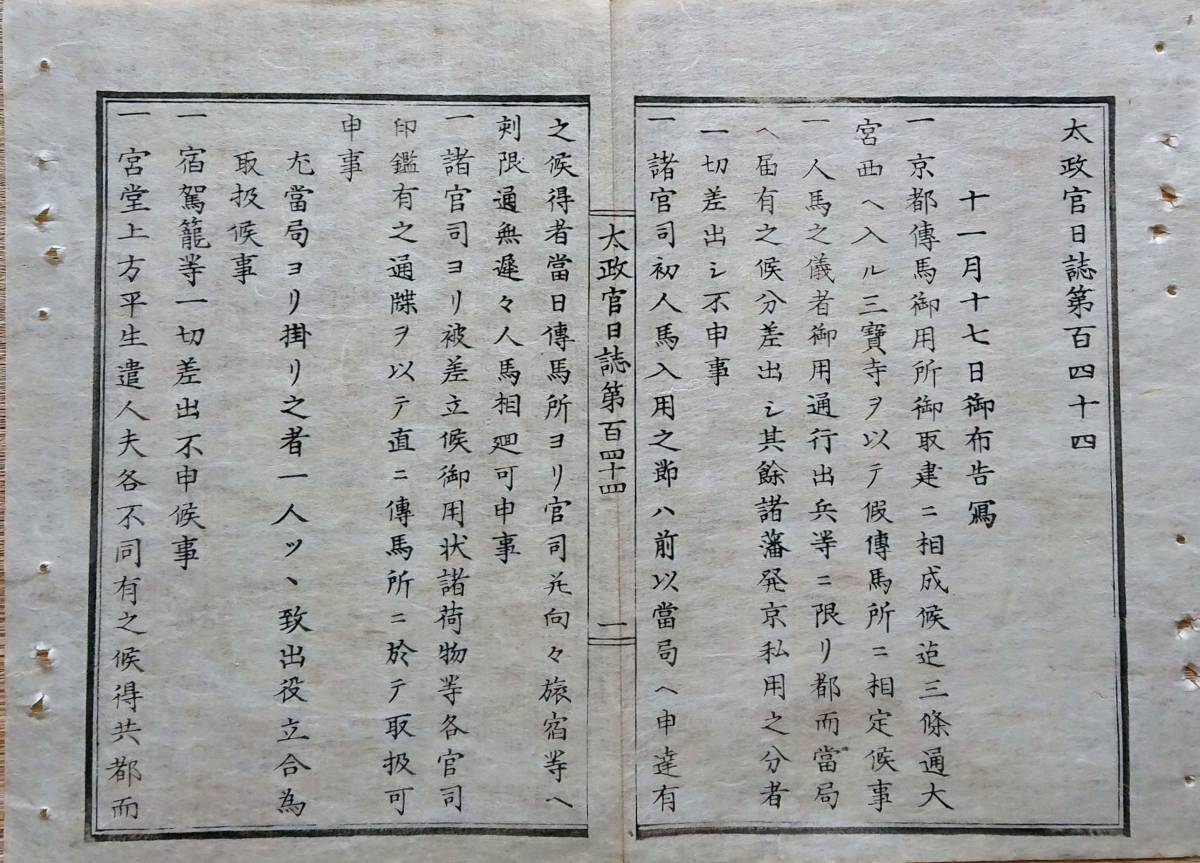 太政官日誌第百四十四
十一月十七日御布告寫
一京都傳馬御用所御取建ニ相成候迠三條通大
宮西ヘ入ル三寶寺ヲ以テ假傳馬所ニ相定候事
一人馬之儀者御用通行出兵等ニ限リ都而當局
ヘ届有之候分差出シ其餘諸藩発京私用之分者
一切差出シ不申事
一諸官司初人馬入用之節ハ前以當局ヘ申達有
太政官日誌第百四十四
一
之候得者當日傳馬所ヨリ官司并向々旅宿等ヘ
刻限通無遲々人馬相廻可申事
一諸官司ヨリ被差立候御用状諸荷物等各官司
印鑑有之通牒ヲ以テ直ニ傳馬所ニ於テ取扱可
申事
尤當局ヨリ掛リ之者一人ツヽ致出役立合為
取扱候事
一宿駕籠等一切差出不申候事
一宮堂上方平生遣人夫各不同有之候得共都而